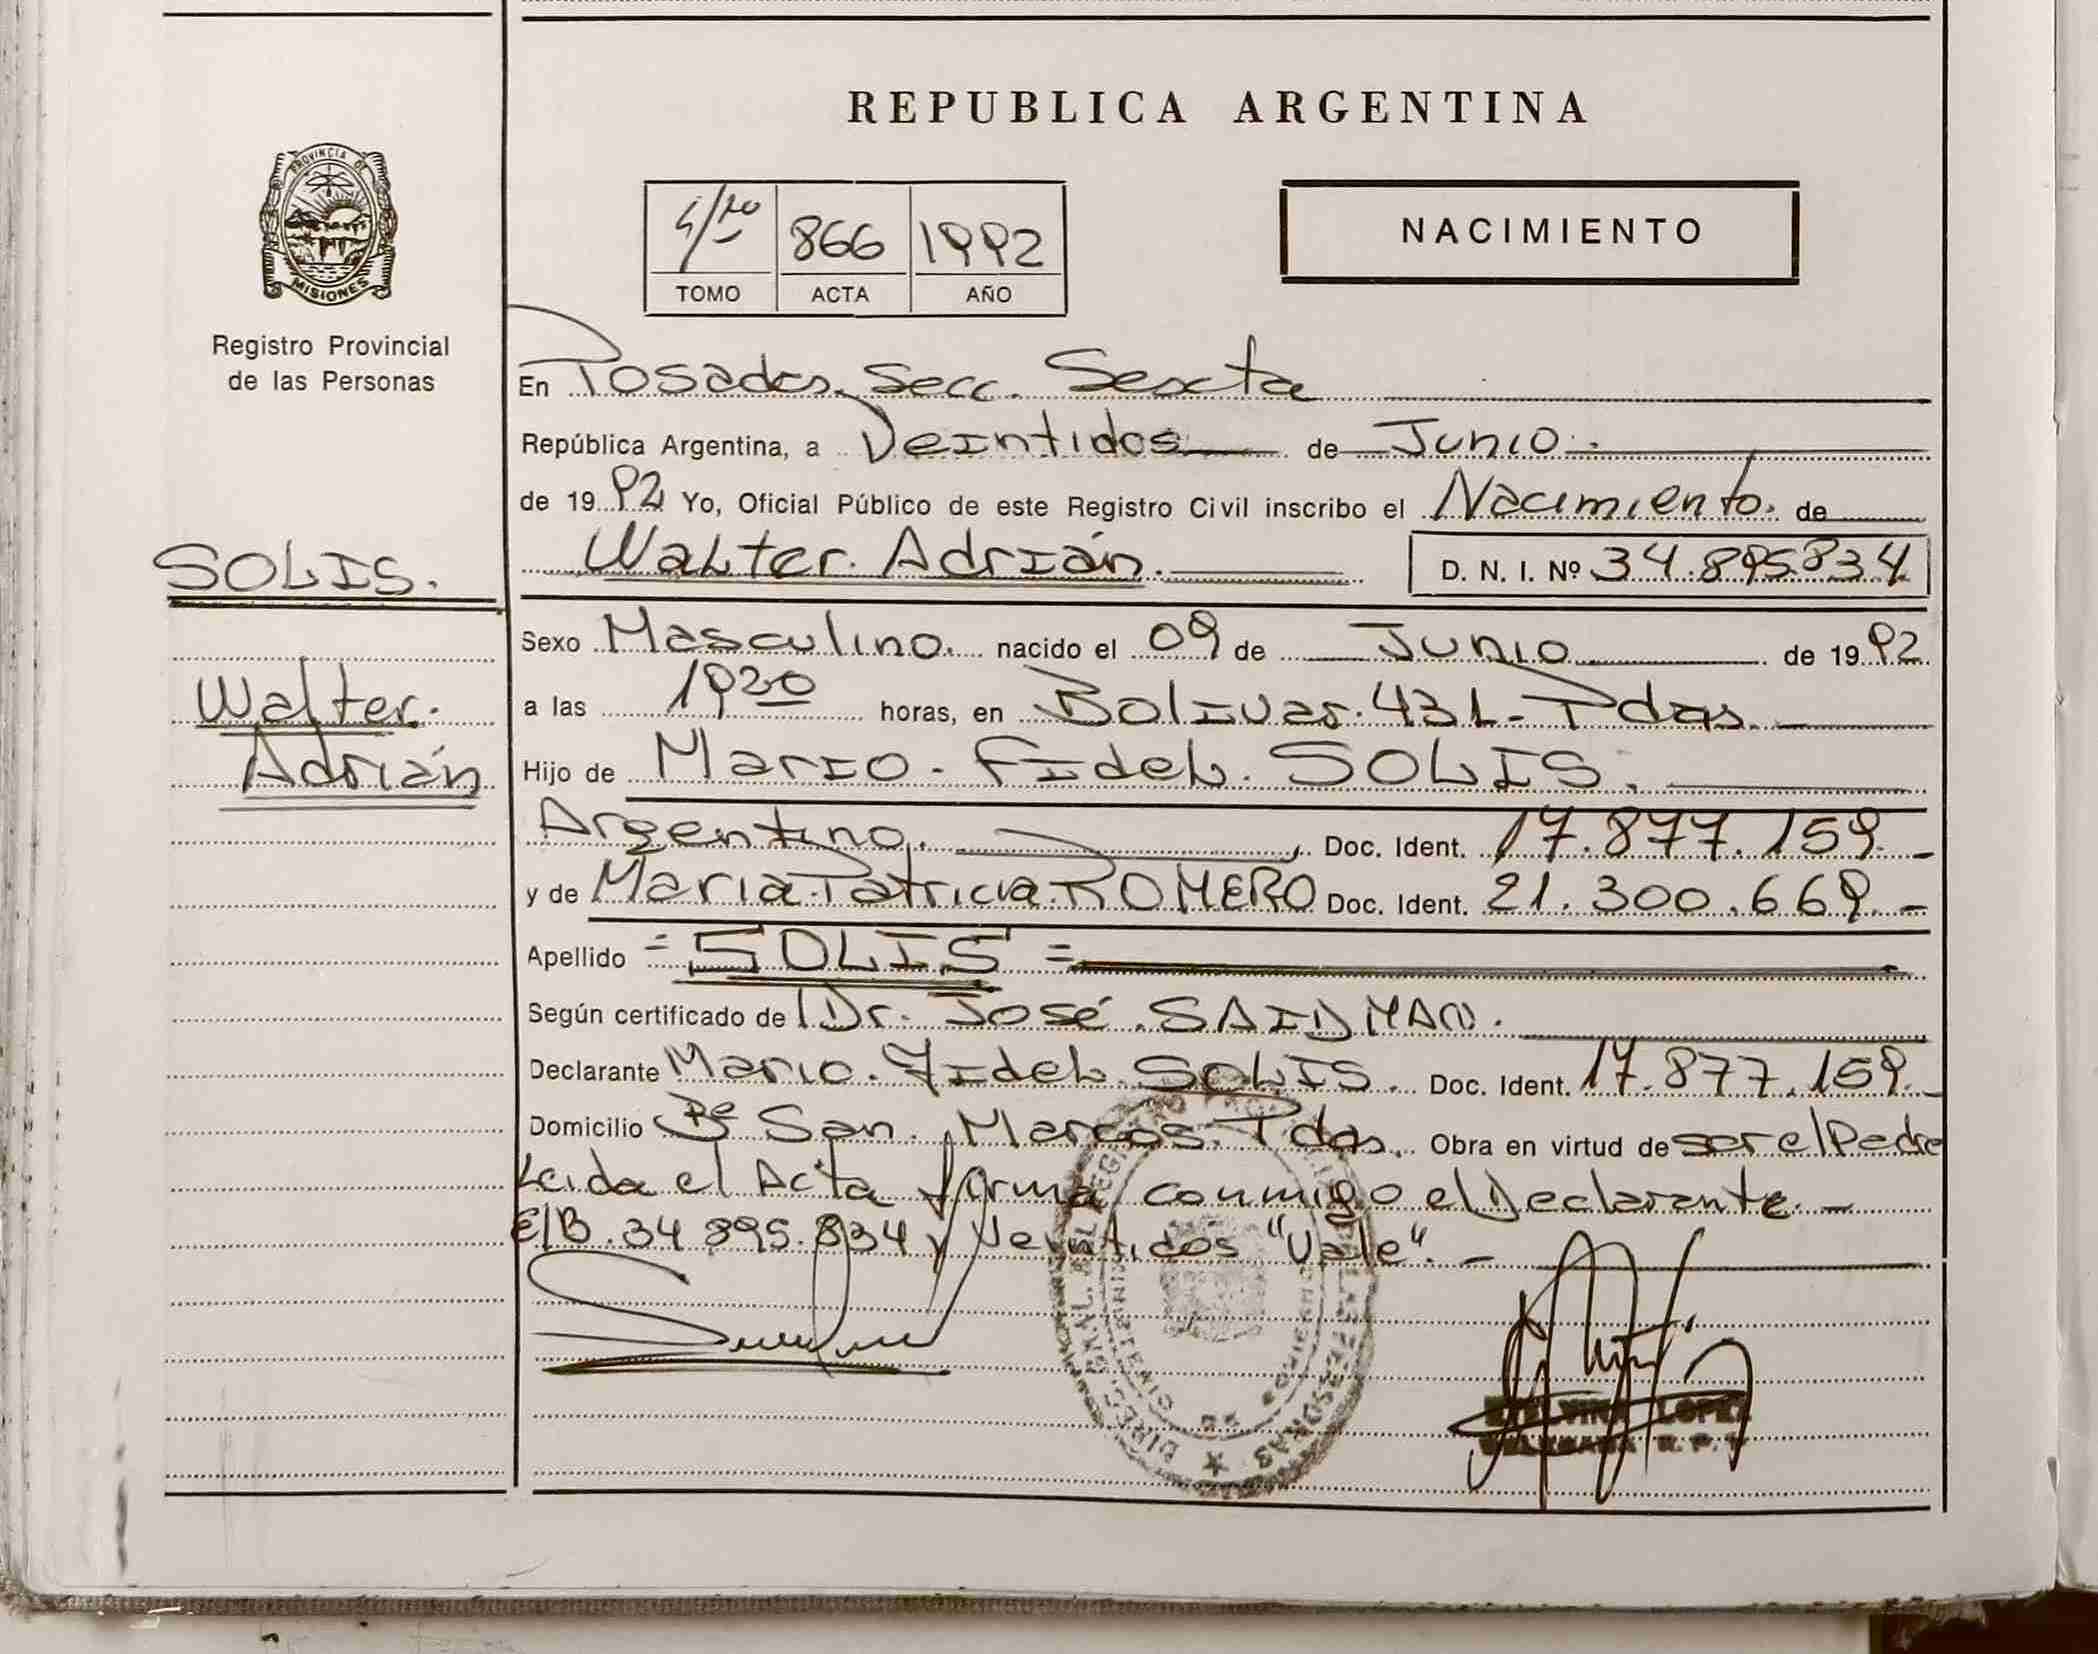 REPUBLICA ARGENTINA
PROVINCIA DE
MISIONES
Registro Provincial
de las Personas
4/to 866 1992
TOMO ACTA AÑO
NACIMIENTO
En Posadas. Secc. Sexta
República Argentina, a Veintidos de Junio.
de 1992 Yo, Oficial Público de este Registro Civil inscribo el Nacimiento. de
Walter. Adrián. D. N. I. Nº 34.895.834
SOLIS.
Walter.
Adrián
Sexo Masculino. nacido el 09 de Junio de 1992
a las 1920 horas, en Bolivar. 431 - Pdas.
Hijo de Mario. Fidel. SOLIS.
Argentino. Doc. Ident. 17.877.159.-
y de Maria. Patricia. ROMERO Doc. Ident. 21.300.669.-
Apellido = SOLIS =
Según certificado de Dr. José. SAIDMAN.
Declarante Mario. Fidel. SOLIS. Doc. Ident. 17.877.159.-
Domicilio Bº San. Marcos. Pdas. Obra en virtud de ser el Padre
Leida el Acta firma conmigo el Declarante. -
E/B. 34 895.834 y Veintidos "Vale". -
LOPEZ